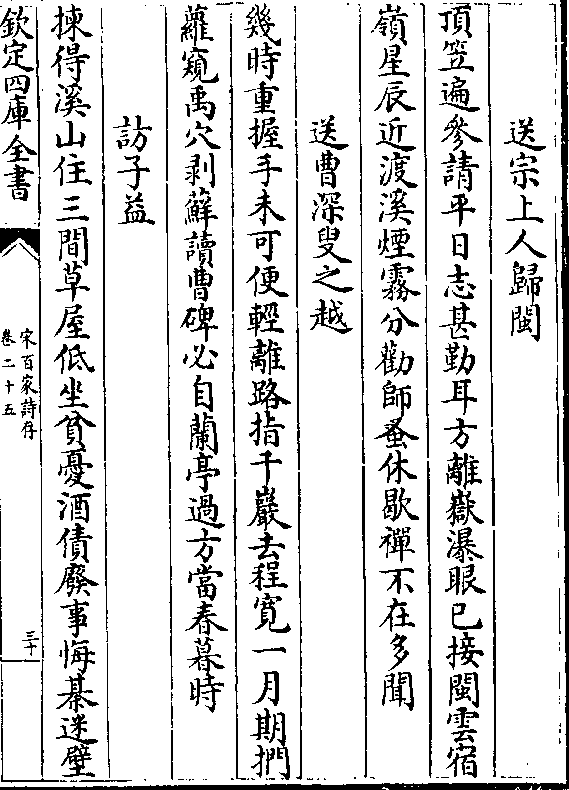 送宗上人歸閩
頂笠遍參請平日志甚勤耳方離嶽瀑眼已接閩雲宿
嶺星辰近渡溪煙霧分勸師蚤休歇禪不在多聞
送曹深叟之越
幾時重握手未可便輕離路指千巖去程寬一月期捫
蘿窺禹穴剥蘚讀曹碑必自蘭亭過方當春暮時
訪子益
揀得溪山住三間草屋低坐貧憂酒債廢事悔棊迷壁
欽定四庫全書
宋百家詩存
卷二十五
三十